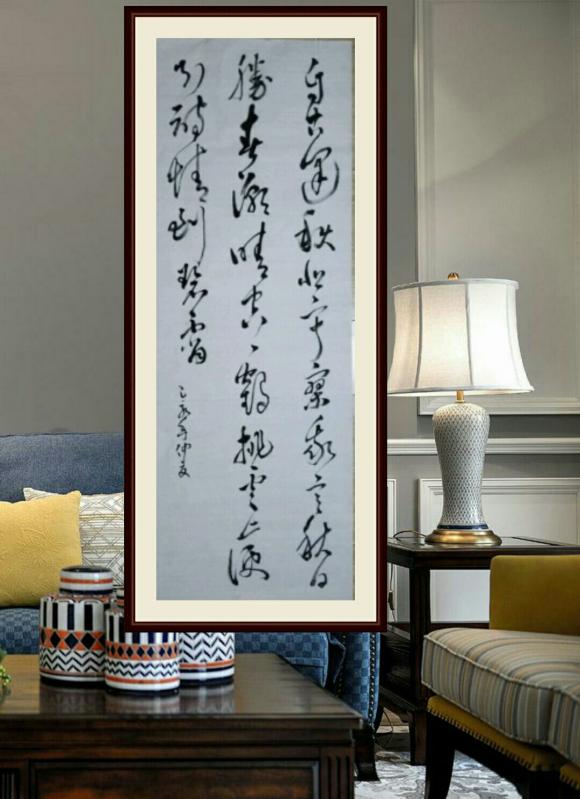 自古逢秋悲寂寥我言秋日
勝春潮晴空一鶴排雲上便
引詩情到碧霄
己亥年仲夏